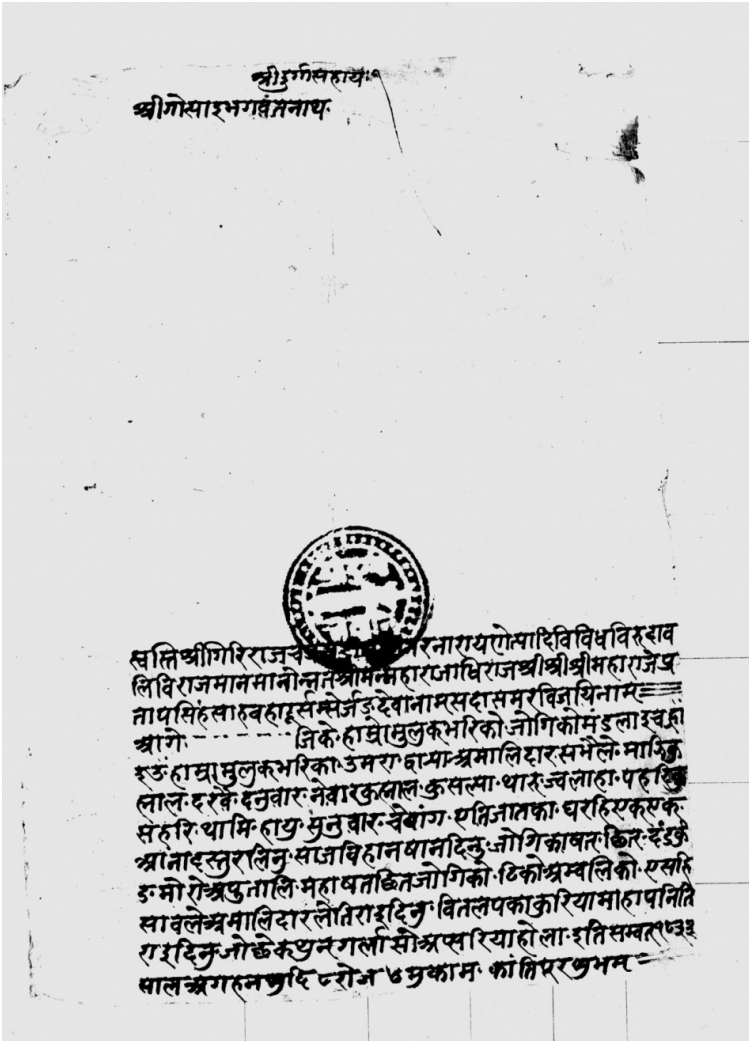 श्रीदुर्गासहायः१
श्रीगोसाइभगवंतनाथ
स्वस्तिश्रीगिरिराजच नरनारायणेत्यादिविविधविरुदाव
लिविराजमानमानोन्नतश्रीमन्महाराजाधिराजश्रीश्रीश्रीमहाराजप्र
तापसिंहसाहवहादूर्सम्सेर्जङदेवानाम्सदासमरविजयिनाम्
आगे जिके हाम्रामुलुकभरिको जोगिको मंडलाइ
हाम्रामुलुकभरिका उमरा द्वार्या अमालिदार सभैले माझि
लाल दरवै दनुवार नेवार कुसाल कुसल्या थारु ज्वलाहा पहरि
सहरि थामि हायु सुनुवार चेवांग एतिजातका घरहि एकएक
आंनादस्तुरलिनु साजविहानषानदिनु जोगिका षत छित दंडकुं
ड मोरोअपुतालि महाषतछितजोगिको टिकोअम्वलिको एसहि
सावले अमालिदारलेतिराइदिनु वितलपकाकुरियामाहापनिति
राइदिनु जो कथुनगर्ला सो अप्सरियाहोला इति सम्वत् १८३३
साल अगहनशुदि ८ रोज ४ मुकाम कांतिपुर शुभम्